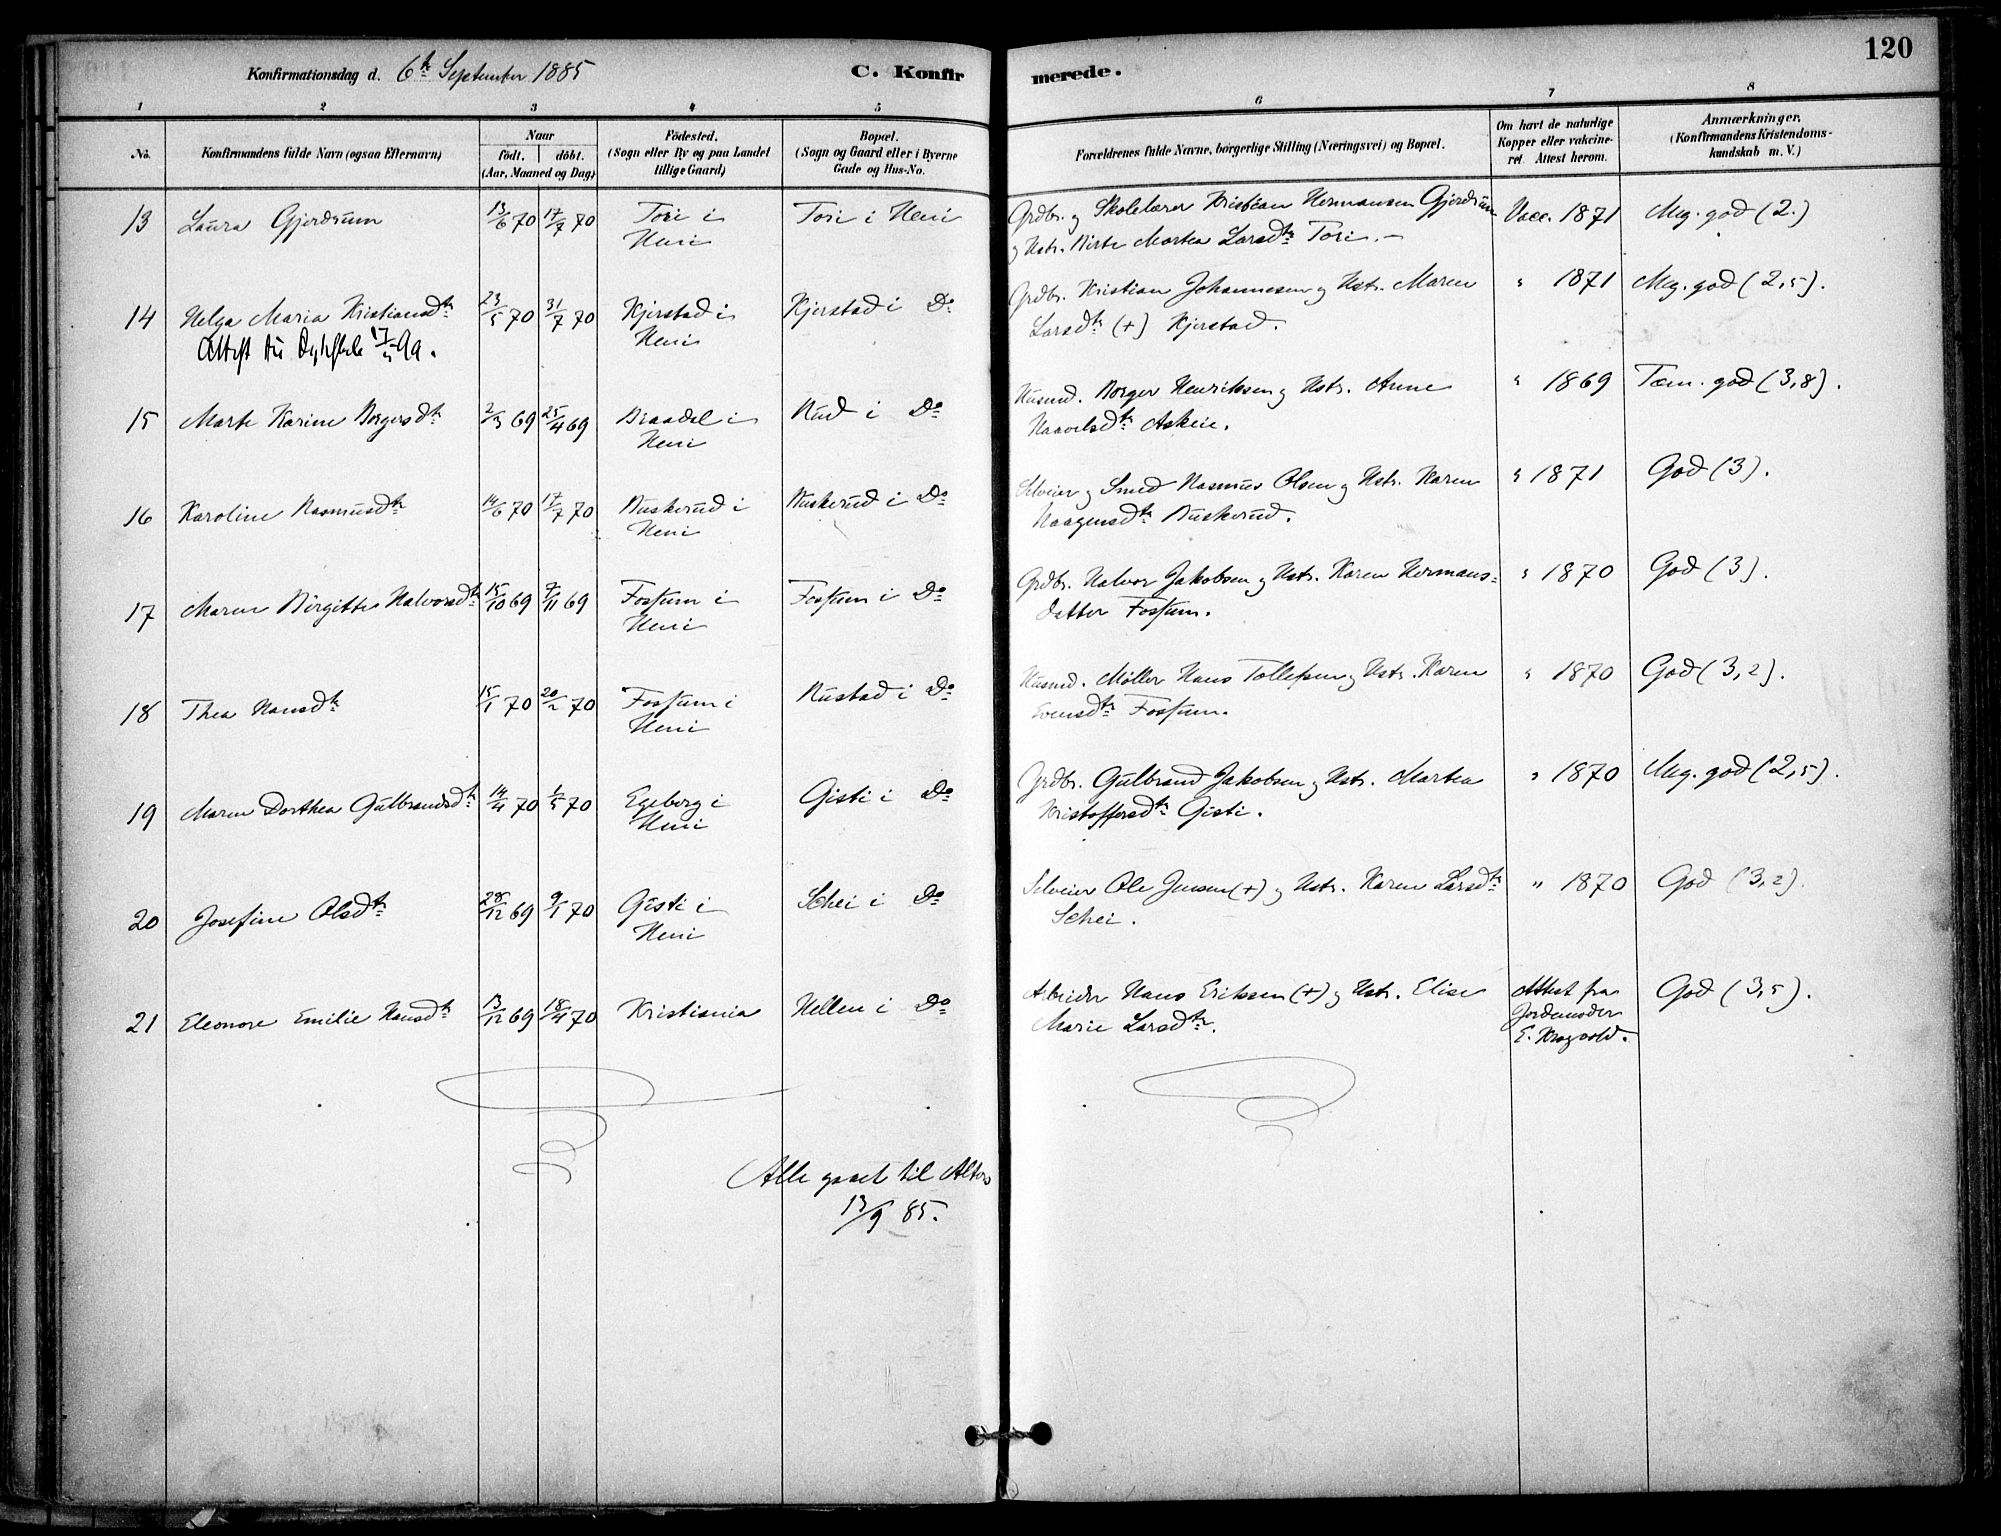 120
Konfirmationsdag d. 6te September 1885
C. Konfir merede.
1 2 3 4 5 6 7 8
No. Konfirmandens fulde Navn (ogsaa Efternavn) Naar födt. döbt. (Aar, Maaned og Dag) Födested. (Sogn eller By og paa Landet tillige Gaard) Bopæl. (Sogn og Gaard eller i Byerne Gade og Hus-No. Forældrenes fulde Navne, borgerlige Stilling (Næringsvei) og Bopæl. Om havt de naturlige Kopper eller vakcineret. Attest herom. Anmærkninger. (Konfirmandens Kristendomskundskab m. V.)
13 Laura Gjerdrum 13/6 70 17/7 70 Tosi i Tosi i Heni Grdbr. og Skolelærer Kristian Hermansen Gjerdrum Vacc. 1871 Mg. god (2.)
Heni og Hstr. Birte Martea Larsdtr Tosi. –
14 Helga Maria Kristiansdtr 23/5 70 31/7 70 Kjerstad i Kjerstad i Do Grdbr. Kristian Johannesen og Hstr. Maren " 1871 Mg. god (2,5).
Attest 99. Heni Larsdtr (+) Kjerstad.
15 Marte Karine Borgersdtr 2/3 69 25/4 69 Braadal i Rud i Do Husmd. Borger Henriksen og Hstr. Anne " 1869 Tem. god (3,8).
Heni Haavelsdtr Askeie.
16 Karoline Rasmusdtr 14/6 70 17/7 70 Buskerud i Buskerud i Do Selveier og Smed Rasmus Olsen og Hstr. Karen " 1871 God (3).
Heni Haagensdtr Buskerud.
17 Maren Birgitte Halvorsdtr 15/10 69 7/11 69 Fossum i Fossum i Do Grdbr. Halvor Jakobsen og Hstr. Karen Hermans= " 1870 God (3).
Heni datter Fossum.
18 Thea Hansdtr 15/1 70 20/2 70 Fossum i Rustad i Do Husmd. Møller Hans Tollefsen og Hstr. Karen " 1870 God (3,2).
Heni Evensdtr Fossum.
19 Maren Dorthea Gulbrandsdtr 14/4 70 1/5 70 Egeberg i Gisti i Do Grdbr. Gulbrand Jakobsen og Hstr. Martea " 1870 Mg. god (2,5).
Heni Kristoffersdtr Gisti.
20 Josefine Olsdtr 28/12 69 9/1 70 Gisti i Schei i Do Selveier Ole Jensen (+) og Hstr. Karen Larsdtr " 1870 God (3,2).
Heni Schei.
21 Eleonore Emilie Hansdtr 13/12 69 18/4 70 Kristiania Hellen i Do Arbeider Hans Eriksen (+) og Hstr. Elise Attest fra God (3,5).
Marie Larsdtr. Jordemoder
E. Krogvold.
Alle gaaet til Alters
13/9 85.